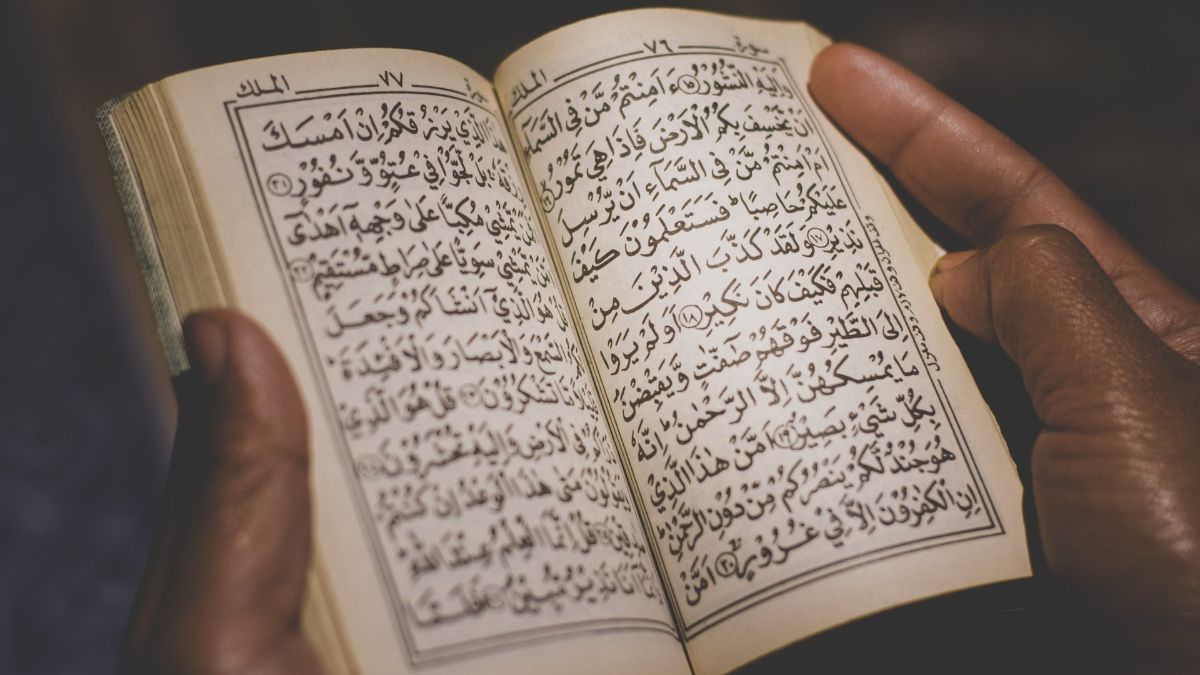 سورة ٧٦ الملك
وَاِلَيْهِ النُّشُوْرُ ⑮ ءَاَمِنْتُمْ مَّنْ فِي السَّمَآءِ
اَنْ يَّخْسِفَ بِكُمُ الْاَرْضَ فَاِذَا هِيَ تَمُوْرُ ⑯
اَمْ اَمِنْتُمْ مَّنْ فِي السَّمَآءِ اَنْ يُّرْسِلَ
عَلَيْكُمْ حَاصِبًا ؕ فَسَتَعْلَمُوْنَ كَيْفَ
نَذِيْرِ ⑰ وَلَقَدْ كَذَّبَ الَّذِيْنَ مِنْ
قَبْلِهِمْ فَكَيْفَ كَانَ نَكِيْرِ ⑱ اَوَلَمْ يَرَوْا
اِلَى الطَّيْرِ فَوْقَهُمْ صٰٓفّٰتٍ وَّيَقْبِضْنَ
مَا يُمْسِكُهُنَّ اِلَّا الرَّحْمٰنُ ؕ اِنَّهٗ
بِكُلِّ شَيْءٍ بَصِيْرٌ ⑲ اَمَّنْ هٰذَا الَّذِيْ
هُوَ جُنْدٌ لَّكُمْ يَنْصُرُكُمْ مِّنْ دُوْنِ الرَّحْمٰنِ ؕ
اِنِ الْكٰفِرُوْنَ اِلَّا فِيْ غُرُوْرٍ ⑳ اَمَّنْ
سورة ٧٧ الملك
هٰذَا الَّذِيْ يَرْزُقُكُمْ اِنْ اَمْسَكَ
رِزْقَهٗ ۚ بَلْ لَّجُّوْا فِيْ عُتُوٍّ وَّنُفُوْرٍ ㉑
اَفَمَنْ يَّمْشِيْ مُكِبًّا عَلٰى وَجْهِهٖٓ اَهْدٰٓى
اَمَّنْ يَّمْشِيْ سَوِيًّا عَلٰى صِرَاطٍ مُّسْتَقِيْمٍ ㉒
قُلْ هُوَ الَّذِيْٓ اَنْشَاَكُمْ وَجَعَلَ
لَكُمُ السَّمْعَ وَالْاَبْصَارَ وَالْاَفْئِدَةَ ؕ
قَلِيْلًا مَّا تَشْكُرُوْنَ ㉓ قُلْ هُوَ الَّذِيْ
ذَرَاَكُمْ فِي الْاَرْضِ وَاِلَيْهِ تُحْشَرُوْنَ ㉔
وَيَقُوْلُوْنَ مَتٰى هٰذَا الْوَعْدُ اِنْ كُنْتُمْ
صٰدِقِيْنَ ㉕ قُلْ اِنَّمَا الْعِلْمُ عِنْدَ اللّٰهِ ۪
وَاِنَّمَآ اَنَا نَذِيْرٌ مُّبِيْنٌ ㉖ فَلَمَّا